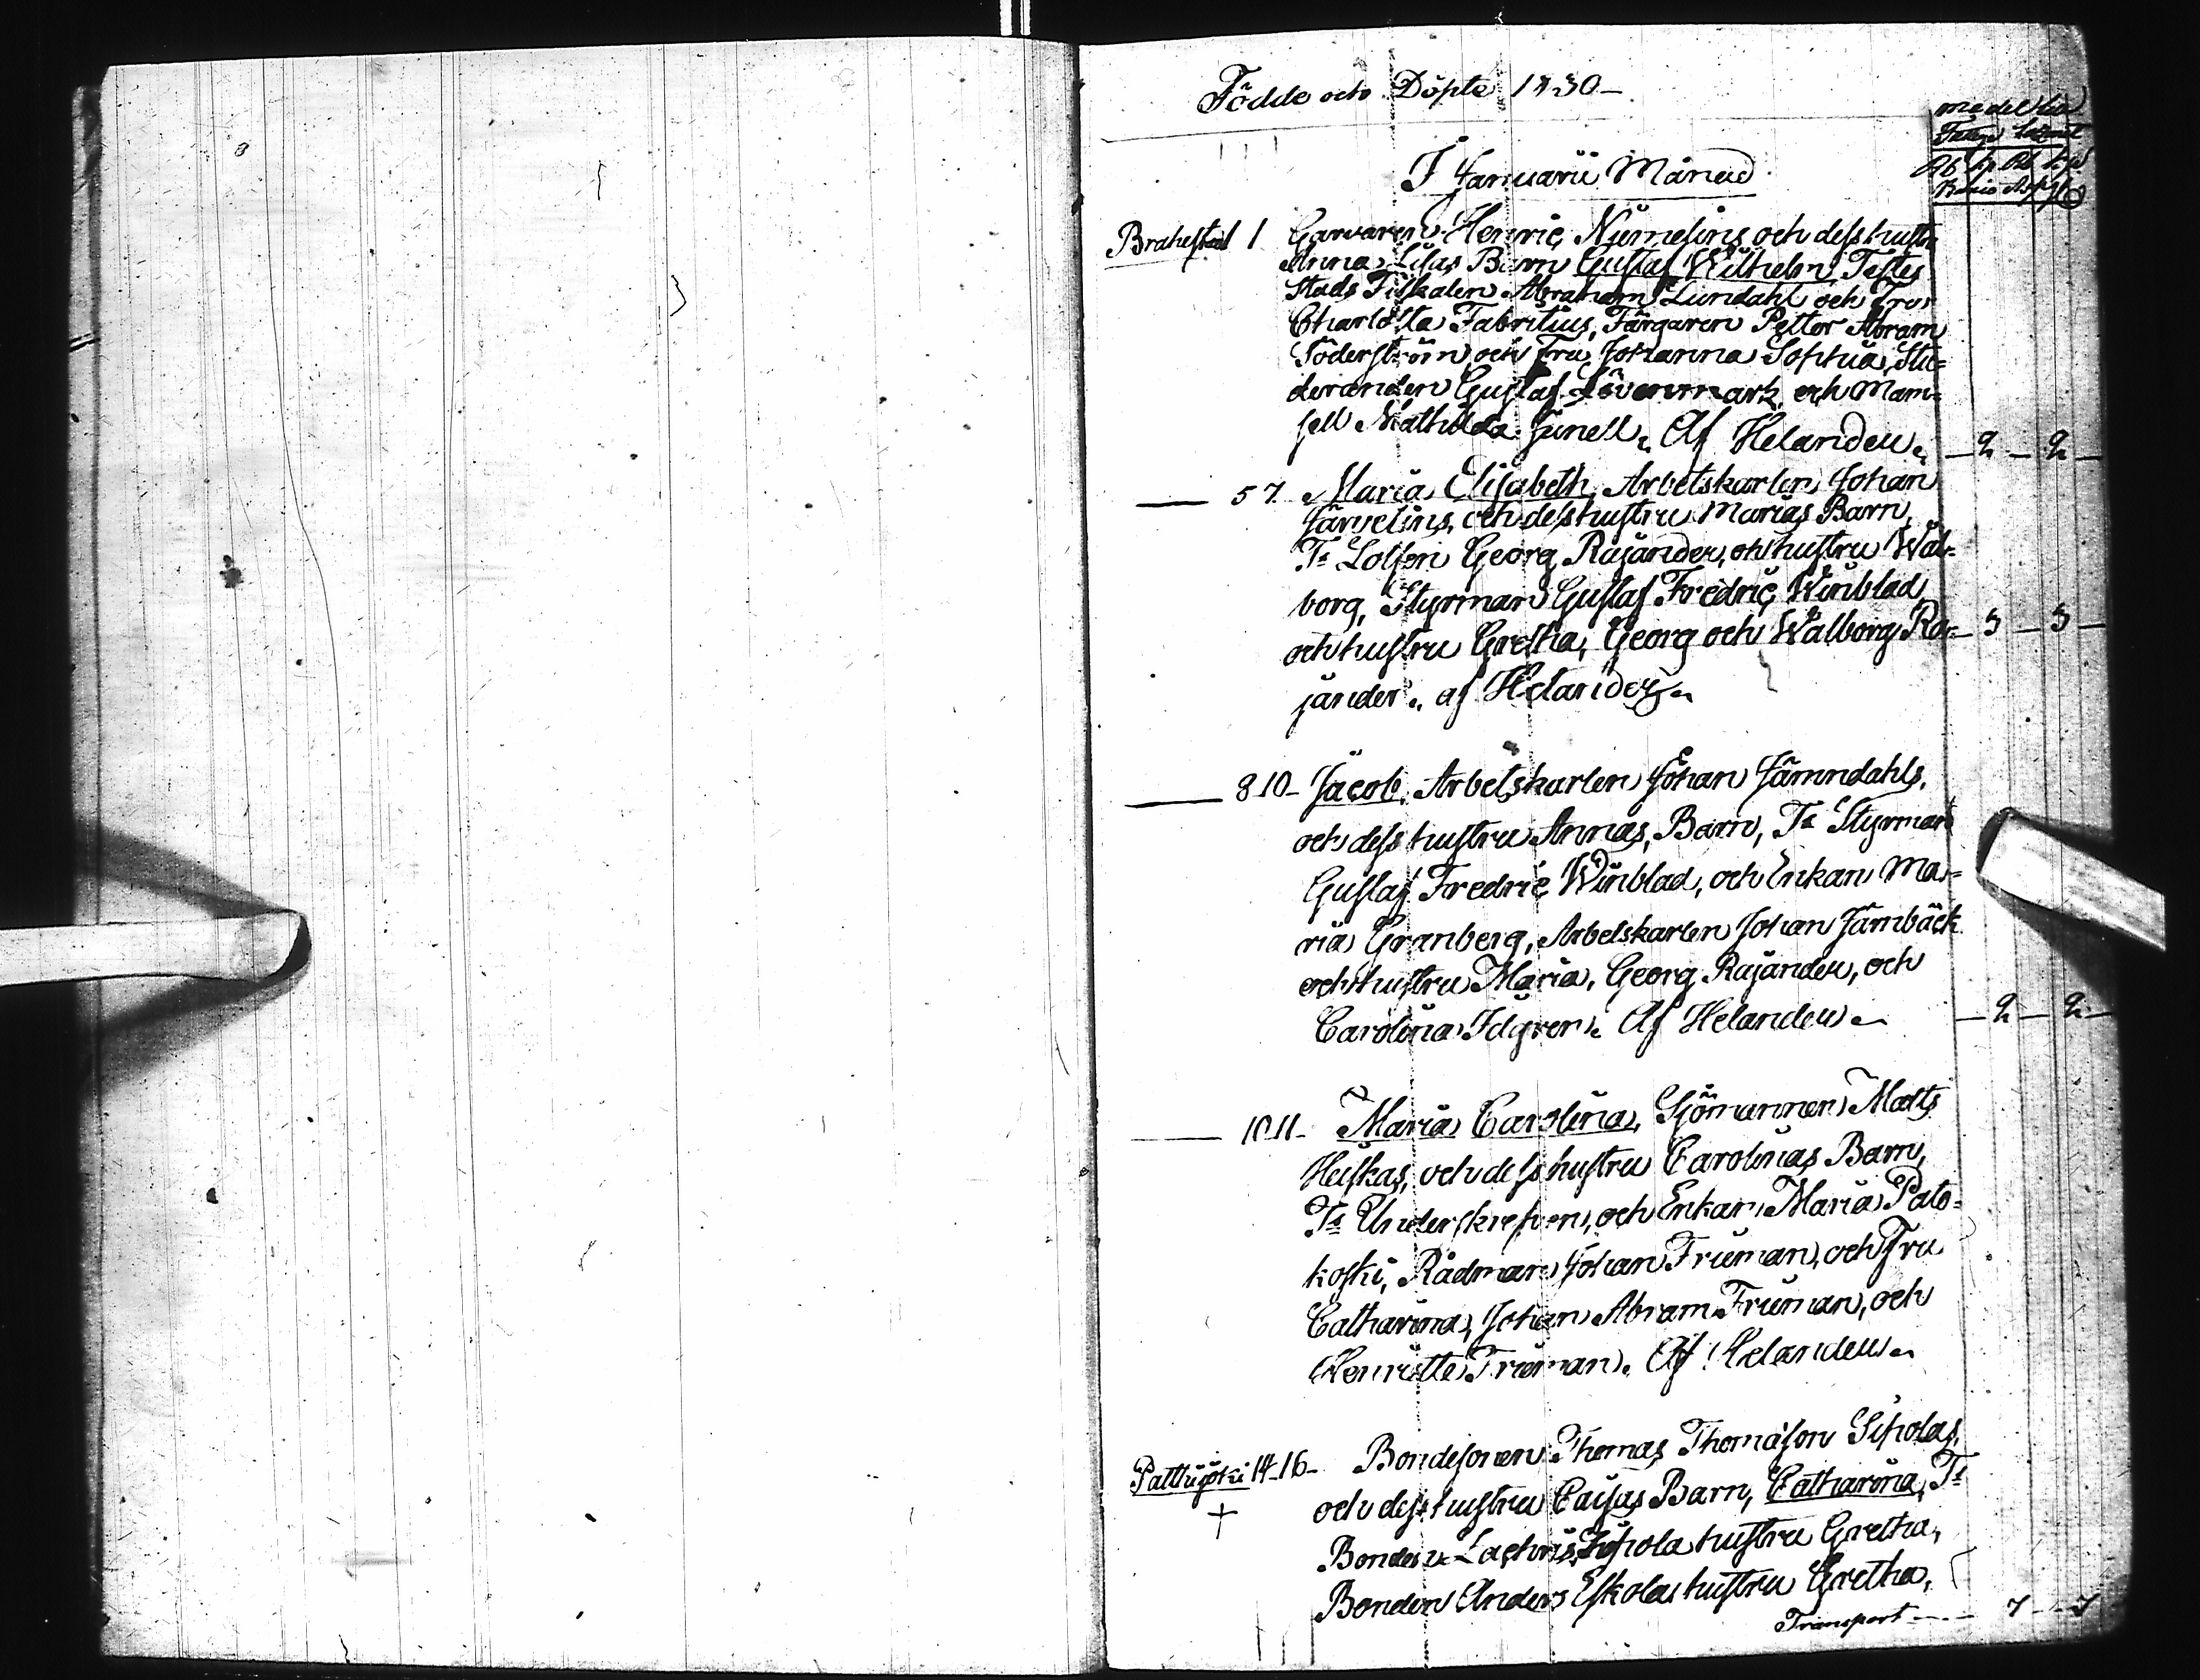 Födde och Döpte 1830
I Januarii Månad
Brahestad 1 Garvaren Henric Numelins och dess hustru
Anna Lisas Barn Gustaf Wilhelm Testes
Stads Fiskalen Abraham Lundahl och Fru
Charlotta Fabritius, Färgaren Petter Abram
Söderström och Fru Johanna Sophia, Stu=
deranden Gustaf Lövenmark och Mam=
sell Mathilda Junell. Af Helander. 2 - 2
5 7. Maria Elisabeth, Arbetskarlen Johan
Järvelins, och dess hustru Marias Barn,
Ts Lotsen Georg Rajander, och hustru Wal=
borg, Styrman Gustaf Fredric Winblad
och hustru Gretha, Georg och Walborg Ra= 3 - 3
jander. af Helander
8 10 Jacob, Arbetskarlen Johan Jämndahls,
och dess hustru Annas, Barn, Ts Styrman
Gustaf Fredric Winblad, och Enkan Ma=
ria Granberg, Arbetskarlen Johan Järnbäck
och hustru Maria, Georg Rajander, och
Carolina Idgren. Af Helander 2 - 2
10 11 Maria Carolina, Sjömannen Matts
Heiskas, och dess hustru Carolinas Barn,
Ts Underskrefven, och Enkan Maria Pato=
koski, Rådman Johan Friman, och Fru
Catharina, Johan Abram Friman, och
Henriette Friman. Af Helander
Pattijoki 14 16 Bondesonen Thomas Thomasson Sipolas,
+ och dess hustru Caisas Barn, Catharina, Ts
Bonden Sipola hustru Gretha,
Bonden Anders Eskolas hustru Gretha,
Transport 7 - 7